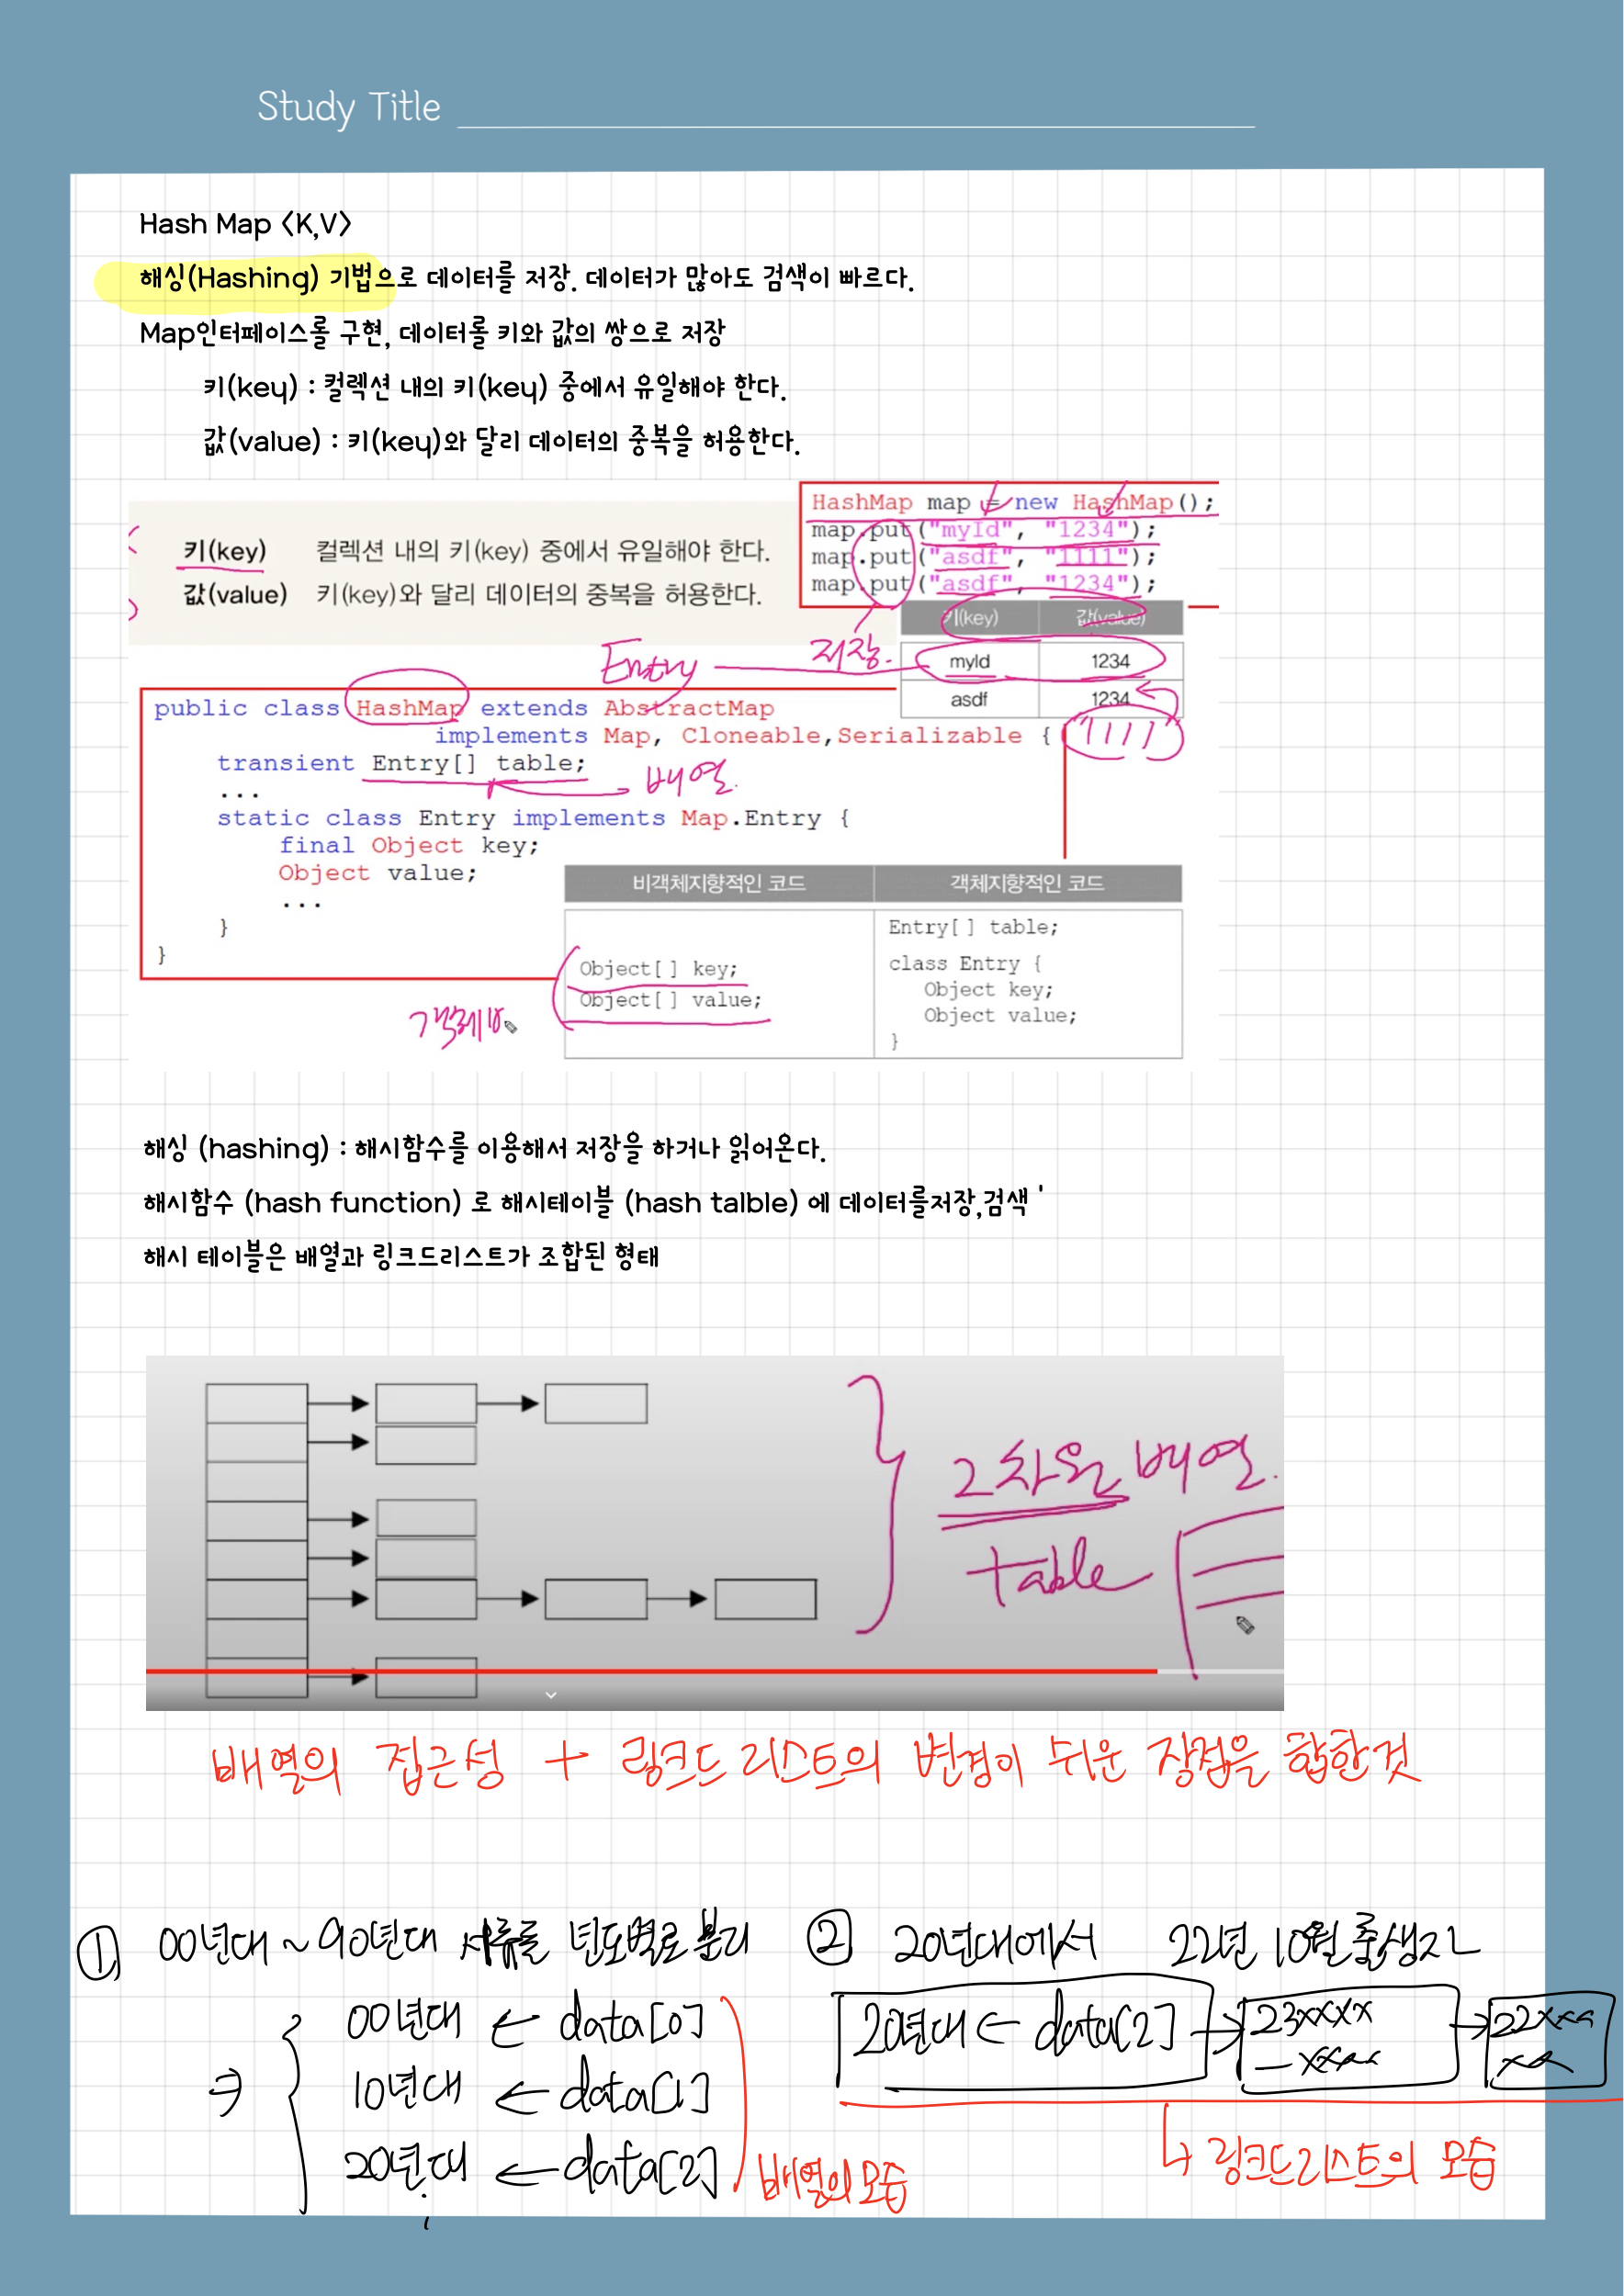 Study Title
Hash Map <K,V>
해싱(Hashing) 기법으로 데이터를 저장. 데이터가 많아도 검색이 빠르다.
Map인터페이스롤 구현, 데이터롤 키와 값의 쌍으로 저장
키(key) : 컬렉션 내의 키(key) 중에서 유일해야 한다.
값(value) : 키(key)와 달리 데이터의 중복을 허용한다.
키(key) 컬렉션 내의 키(key) 중에서 유일해야 한다.
값(value) 키(key)와 달리 데이터의 중복을 허용한다.
HashMap map = new HashMap();
map.put("myId", "1234");
map.put("asdf", "1111");
map.put("asdf", "1234");
키(key) 값(value)
myId 1234
asdf 1234
Entry
저장.
"1111"
public class HashMap extends AbstractMap
implements Map, Cloneable,Serializable {
transient Entry[] table;
배열.
...
static class Entry implements Map.Entry {
final Object key;
Object value;
...
}
}
비객체지향적인 코드
Object[] key;
Object[] value;
객체지향적인 코드
Entry[] table;
class Entry {
Object key;
Object value;
}
해싱 (hashing) : 해시함수를 이용해서 저장을 하거나 읽어온다.
해시함수 (hash function) 로 해시테이블 (hash talble) 에 데이터를저장,검색 '
해시 테이블은 배열과 링크드리스트가 조합된 형태
2차원 배열.
table
배열의 접근성 + 링크드 리스트의 변경이 쉬운 장점을 합한것
① 00년대 ~ 90년대 서류를 년도별로 분리
⇒ 00년대 ← data[0]
10년대 ← data[1]
20년대 ← data[2]
배열의 모습
② 20년대에서 22년 10월 출생자
20년대 ← data[2] → 23xxxx → 22xxxx
-xxxx xx
↳ 링크드리스트의 모습